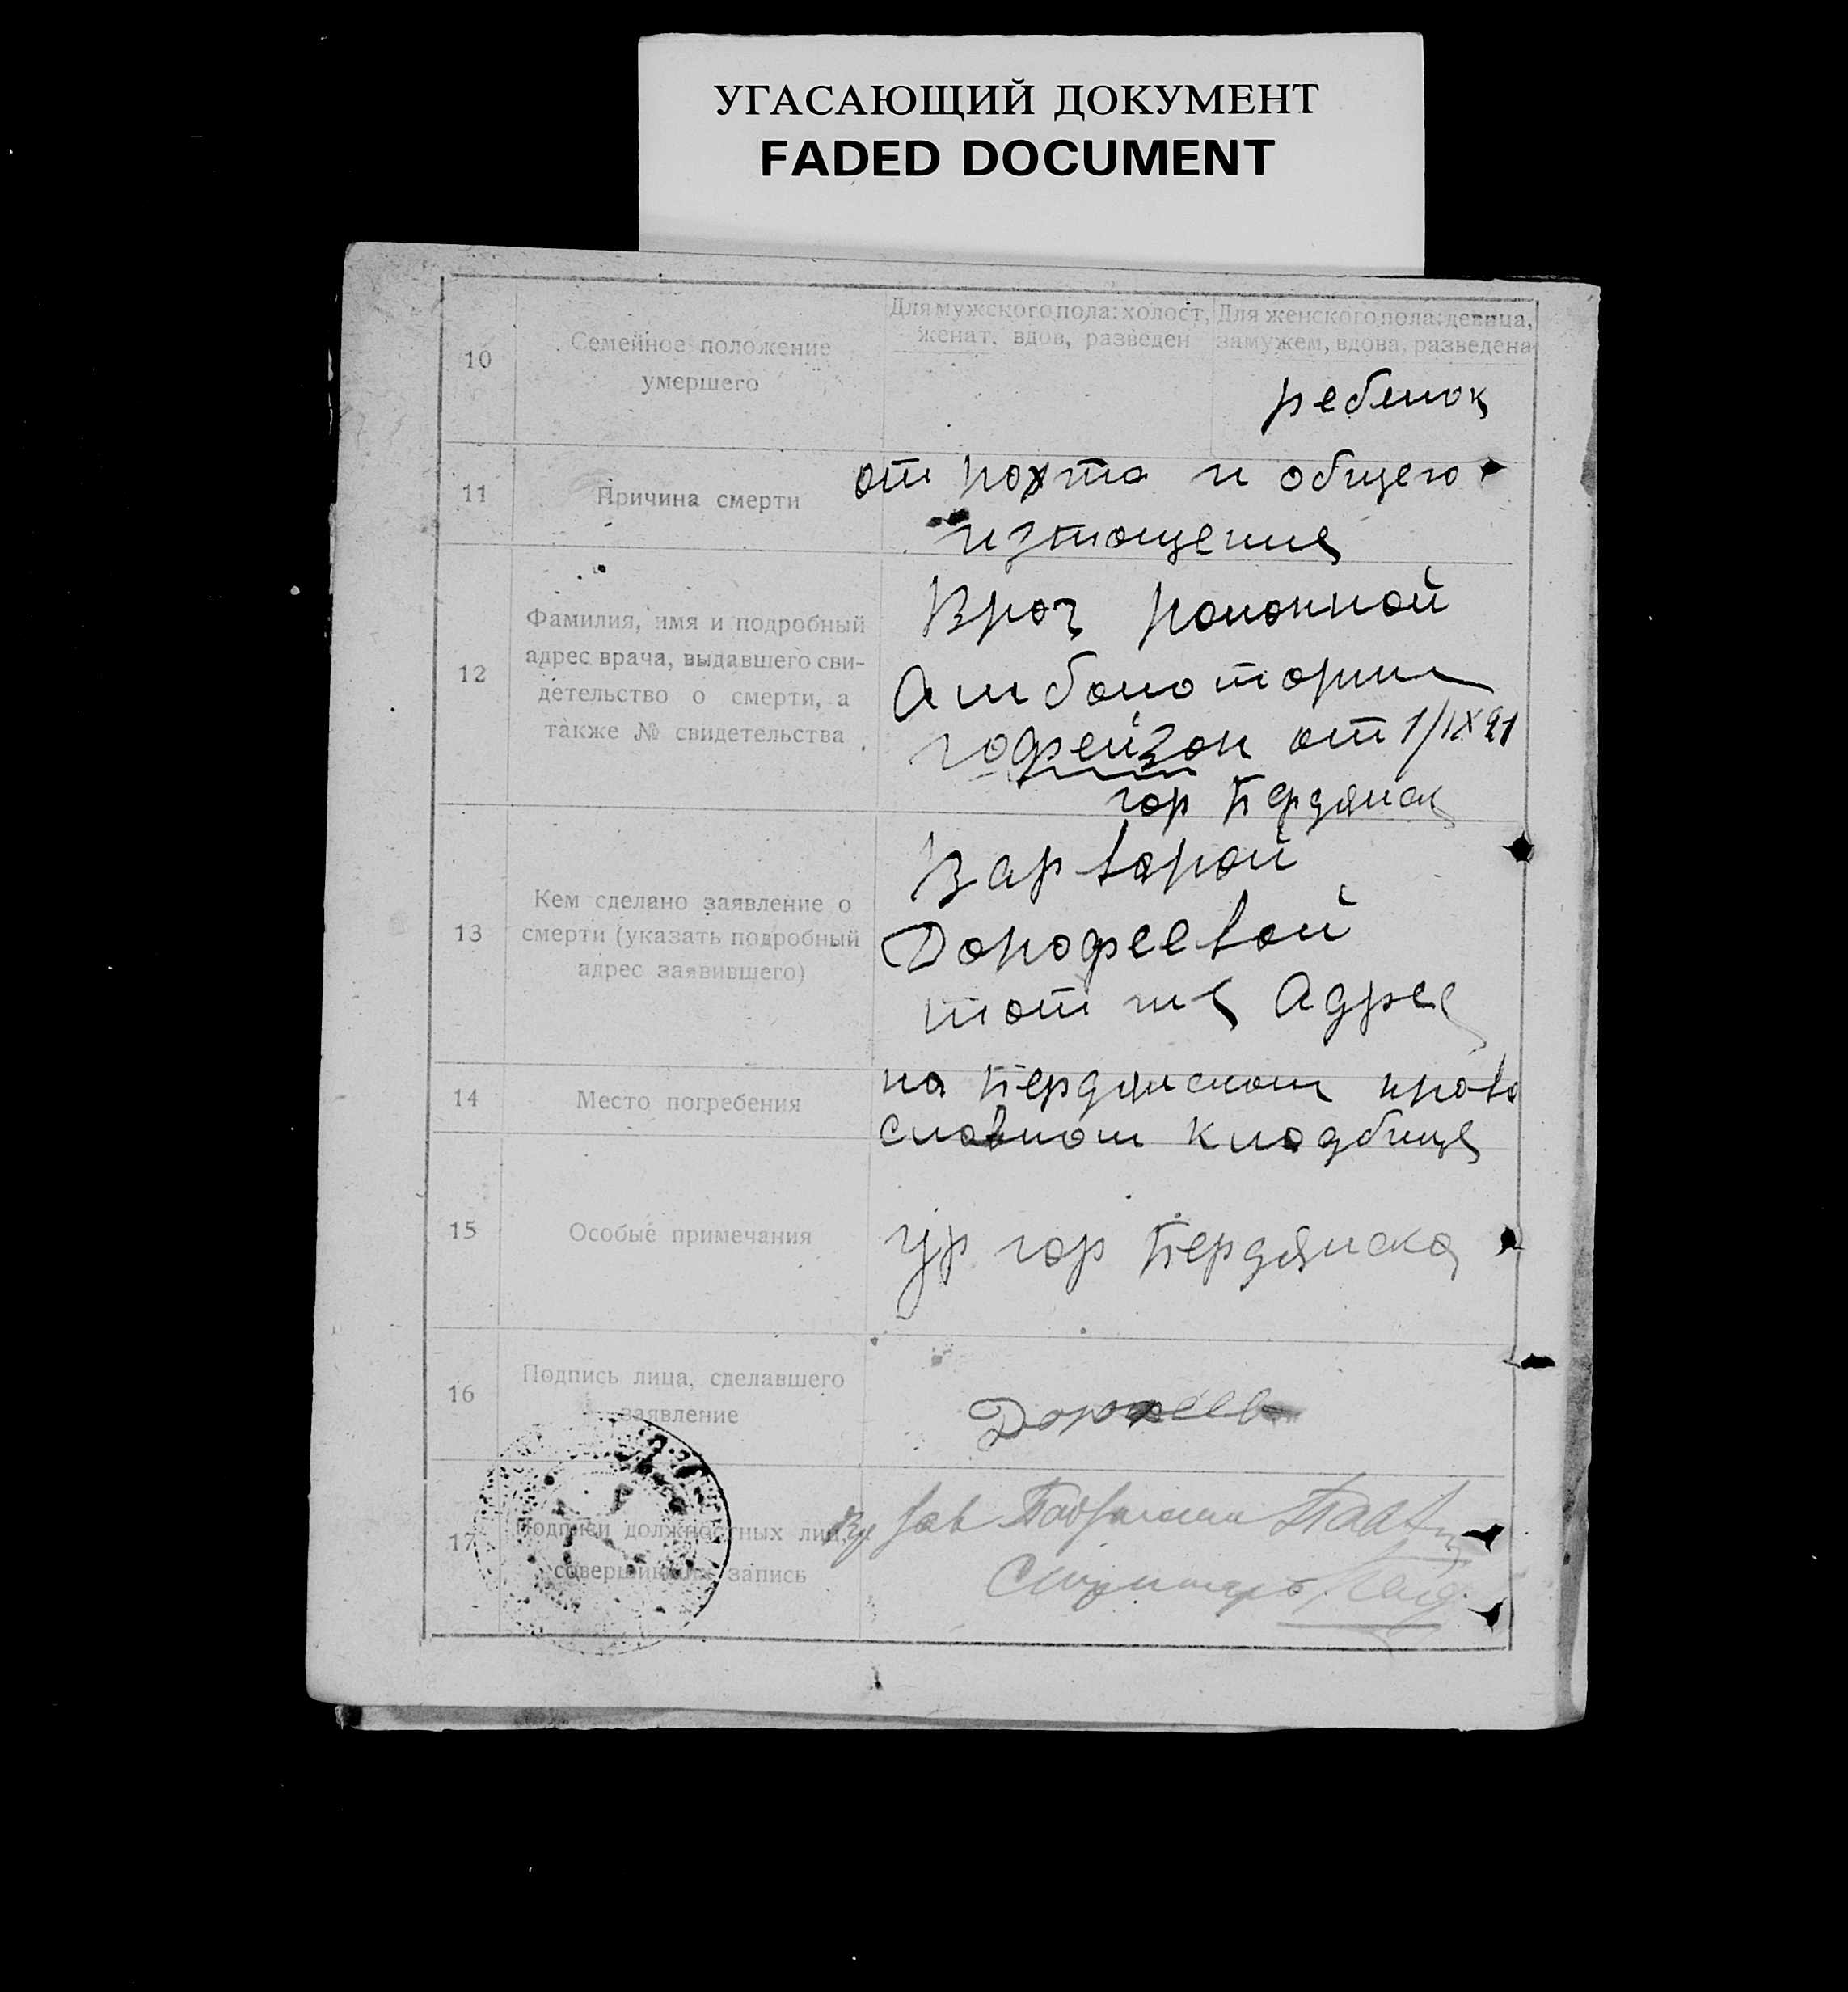 УГАСАЮЩИЙ ДОКУМЕНТ
FADED DOCUMENT
10
Семейное положение
умершего
Для мужского пола: холост,
женат, вдов, разведен
Для женского пола: девица,
замужем, вдова, разведена
ребенок
11
Причина смерти
от рахта и общего
изтощения
12
Фамилия, имя и подробный
адрес врача, выдавшего сви-
детельство о смерти, а
также № свидетельства
Врач районной
Амбалотории
гофейзон от 1/IX 21
гор Бердянск
13
Кем сделано заявление о
смерти (указать подробный
адрес заявившего)
Варварой
Дорофеевой
тот же Адрес
14
Место погребения
на Бердянском право
славном кладбище
15
Особые примечания
гр гор Бердянска
16
Подпись лица, сделавшего
заявление
Дорофеев
17
Подписи должностных лиц,
совершивших запись
Зав